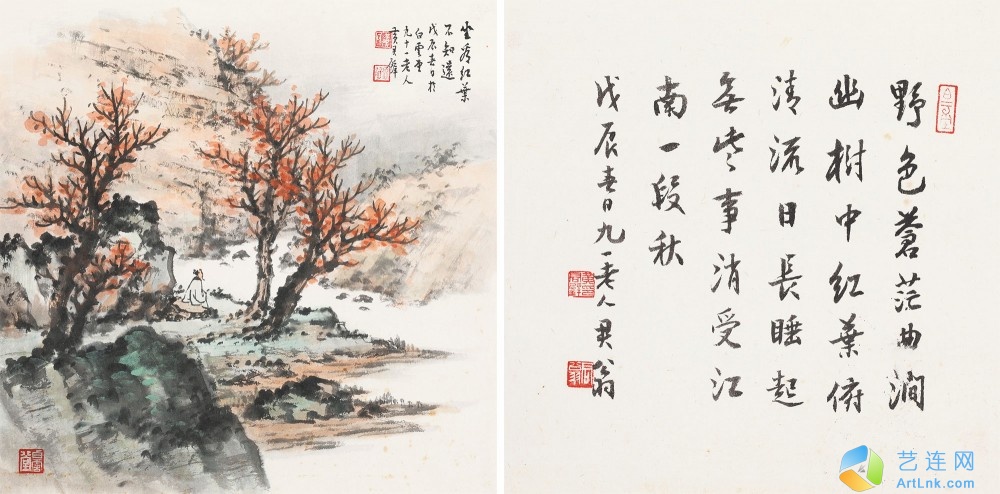 坐看紅葉
不知遠
戊辰春日於
白雲堂
九十一老人
黃君璧
野色蒼茫曲澗
幽樹中紅葉俯
清流日長睡起
無些事消受江
南一段秋
戊辰春日九一老人君翁
白雲堂
艺连网
ArtLnk.com